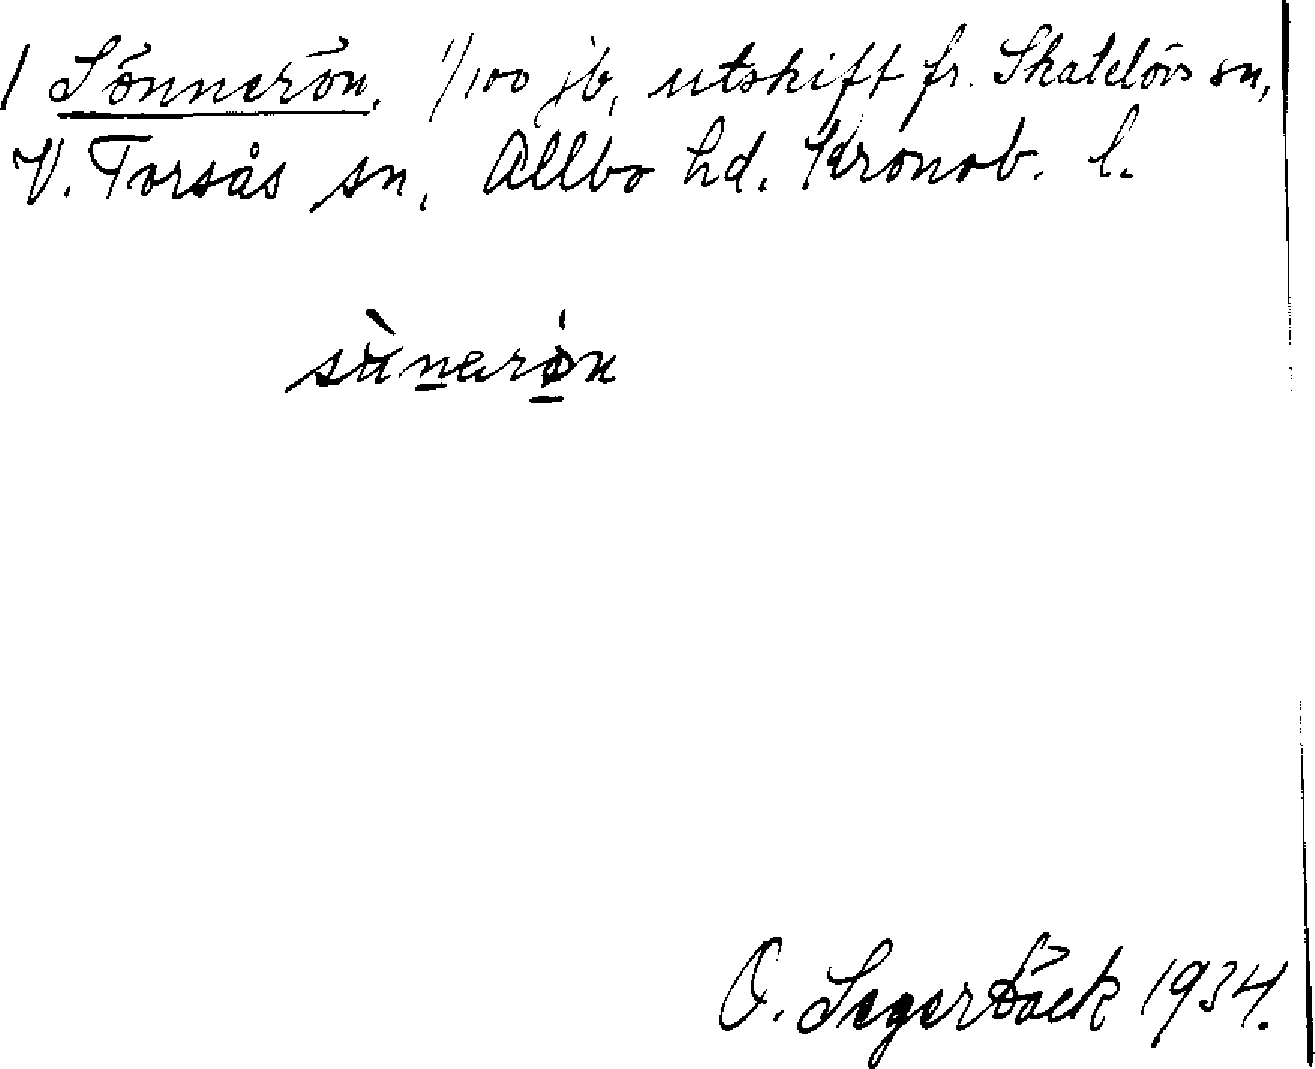 1 Sönnerön, 1/100 jb, utskift fr. Skatelövs sn,
V. Torsås sn, Allbo hd. Kronob. l.
O. Segerbäck 1934.